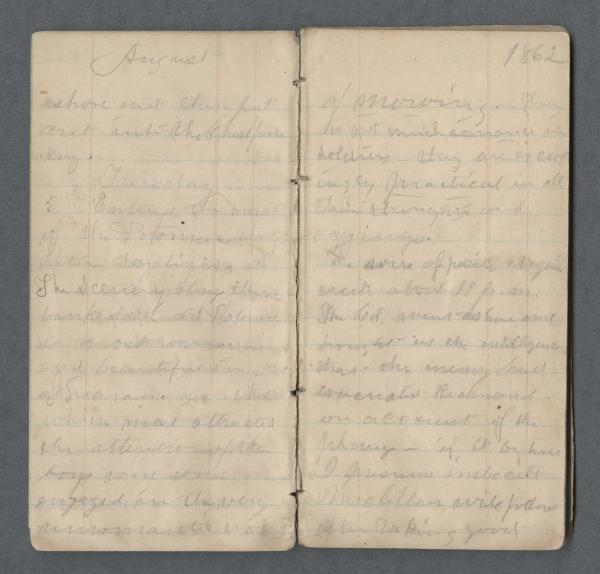 August
ashore and then put
out into the Chesapeake
Bay.
Tuesday
5 Entered the mouth
of the Potomac
The scenery along the
banks of old Potomac
is most romantic
and beautiful in
which most attracted
the attention of the
boys were some
engaged in the very
unromantic work
1862
of mowing. They
have not much romance in
soldiers they are exceed
ingly practical in all
their thoughts and
sayings.
We were opposite Aquia
creek about 11 p.m.
The Col. went ashore and
brought us the intelligence
that the enemy had
evacuated Richmond
on account of the
if it be true
I presume imbecile
McClellan will follow
after taking good